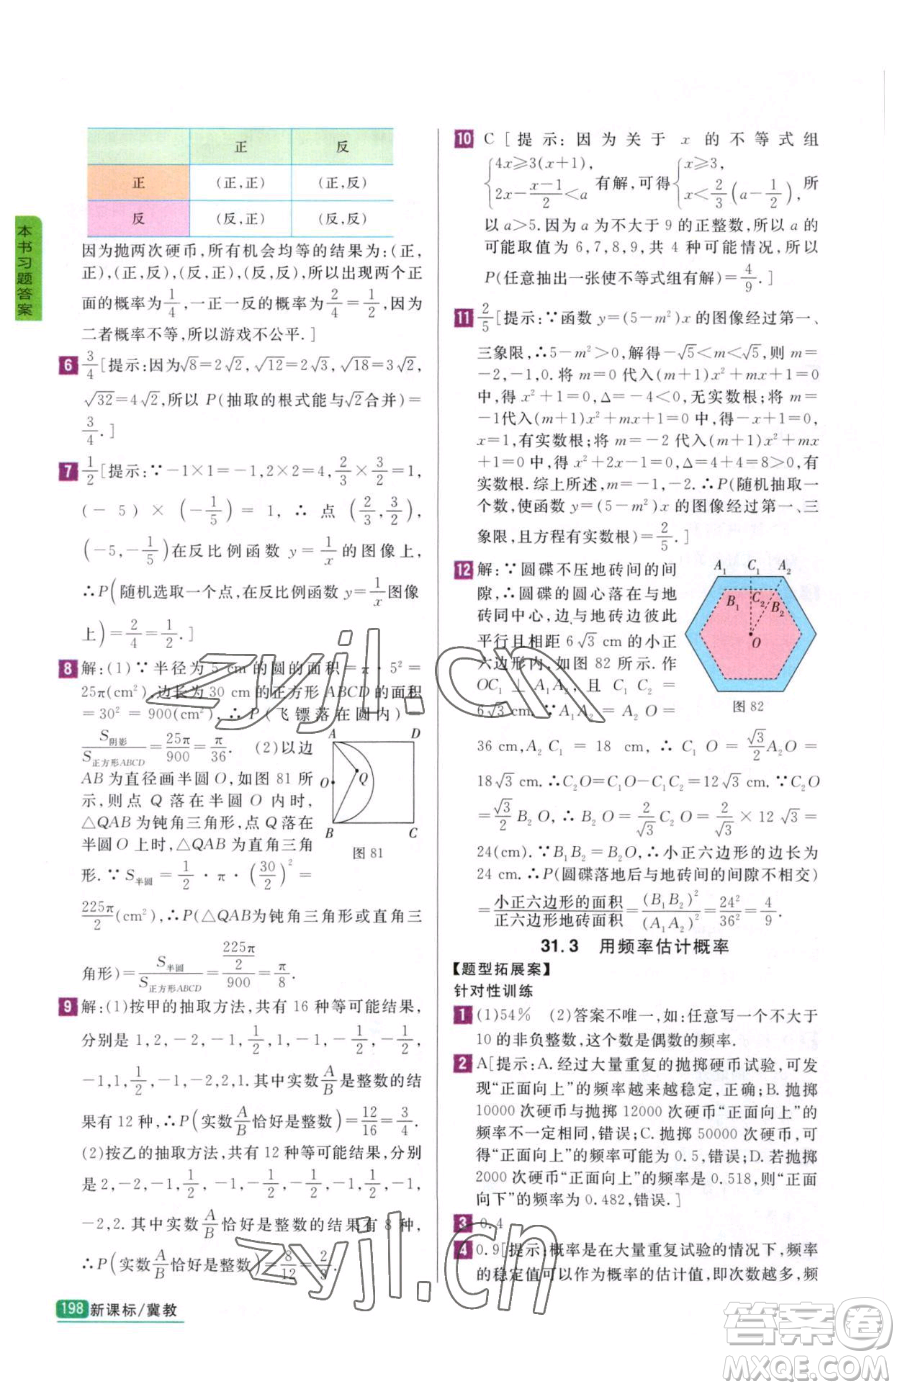 本书习题答案
正 反
正 (正,正) (正,反)
反 (反,正) (反,反)
因为抛两次硬币,所有机会均等的结果为:(正,
正),(正,反),(反,正),(反,反),所以出现两个正
面的概率为1/4,一正一反的概率为2/4=1/2,因为
二者概率不等,所以游戏不公平.]
6 3/4[提示:因为√8=2√2,√12=2√3,√18=3√2,
√32=4√2,所以P(抽取的根式能与√2合并)=
3/4.]
7 1/2[提示:∵-1×1=-1,2×2=4,2/3×3/2=1,
(-5)×(-1/5)=1,∴点(2/3,3/2),
(-5,-1/5)在反比例函数y=1/x的图像上,
∴P(随机选取一个点,在反比例函数y=1/x图像
上)=2/4=1/2.]
8 解:(1)∵半径为5 cm的圆的面积=π·5²=
25π(cm²),边长为30 cm的正方形ABCD的面积
=30²=900(cm²),∴P(飞镖落在圆内)=
S阴影/S正方形ABCD=25π/900=π/36.(2)以边
AB为直径画半圆O,如图81所
示,则点Q落在半圆O内时,
△QAB为钝角三角形,点Q落在
半圆O上时,△QAB为直角三角
形.∵S半圆=1/2·π·(30/2)²=
A D
O Q
B C
图81
225π/2(cm²),∴P(△QAB为钝角三角形或直角三
角形)=S半圆/S正方形ABCD=(225π/2)/900=π/8.
9 解:(1)按甲的抽取方法,共有16种等可能结果,
分别是1,-2,-1,2,-1/2,1,1/2,-1,
-1,1,1,-2,-1,-2,2,1.其中实数A/B是整数的结
果有12种,∴P(实数A/B恰好是整数)=12/16=3/4.
(2)按乙的抽取方法,共有12种等可能结果,分别
是2,-2,-1,-1,-2,1/2,
-2,2.其中实数A/B恰好是整数的结果有8种,
∴P(实数A/B恰好是整数)=8/12=2/3.
198 新课标/冀教
10 C[提示:因为关于x的不等式组
{4x≥3(x+1), 2x-(x-1)/2<a 有解,可得{x≥3, x<2/3(a-1/2), 所
以a>5.因为a为不大于9的正整数,所以a的
可能取值为6,7,8,9,共4种可能情况,所
以P(任意抽出一张使不等式组有解)=4/9.]
11 2/5[提示:∵函数y=(5-m²)x的图像经过第一、
三象限,∴5-m²>0,解得-√5<m<√5,则m=
-2,-1,0.将m=0代入(m+1)x²+mx+1=0
中,得x²+1=0,Δ=-4<0,无实数根;将m=
-1代入(m+1)x²+mx+1=0中,得-x+1=
0,有实数根;将m=-2代入(m+1)x²+mx+
1=0中,得x²+2x-1=0,Δ=4+4=8>0,有
实数根.综上所述,m=-1,-2.∴P(随机抽取一
个数,使函数y=(5-m²)x的图像经过第一、三
象限,且方程有实数根)=2/5.]
12 解:∵圆碟不压地砖间的间
隙,∴圆碟的圆心落在与地
砖同中心,边与地砖边彼此
平行且相距6√3 cm的小正
六边形内,如图82所示.作
OC₁⊥A₁A₂,且C₁C₂=
6√3 cm.∵A₁A₂=A₂O=
A₁ C₁ A₂
B₁ C₂ B₂
O
图82
36 cm,A₂C₁=18 cm,∴C₁O=√3/2 A₂O=
18√3 cm.∴C₂O=C₁O-C₁C₂=12√3 cm.∵C₂O
=√3/2 B₂O,∴B₂O=2/√3 C₂O=2/√3×12√3=
24(cm).∵B₁B₂=B₂O,∴小正六边形的边长为
24 cm.∴P(圆碟落地后与地砖间的间隙不相交)
=小正六边形的面积/正六边形地砖面积=(B₁B₂)²/(A₁A₂)²=24²/36²=4/9.
31.3 用频率估计概率
【题型拓展案】
针对性训练
1 (1)54% (2)答案不唯一,如:任意写一个不大于
10的非负整数,这个数是偶数的频率.
2 A[提示:A.经过大量重复的抛掷硬币试验,可发
现“正面向上”的频率越来越稳定,正确;B.抛掷
10000次硬币与抛掷12000次硬币“正面向上”的频
率不一定相同,错误;C.抛掷50000次硬币,可得
“正面向上”的频率可能近于0.5,错误;D.若抛掷
2000次硬币“正面向上”的频率是0.518,则“正面
向下”的频率是0.482,错误.]
3 0.4
4 0.9[提示:概率是在大量重复试验的情况下,频率
的稳定值可以作为概率的估计值,即次数越多,频
zyjl.cn
zyjl.cn
答案卷
MXQE.COM